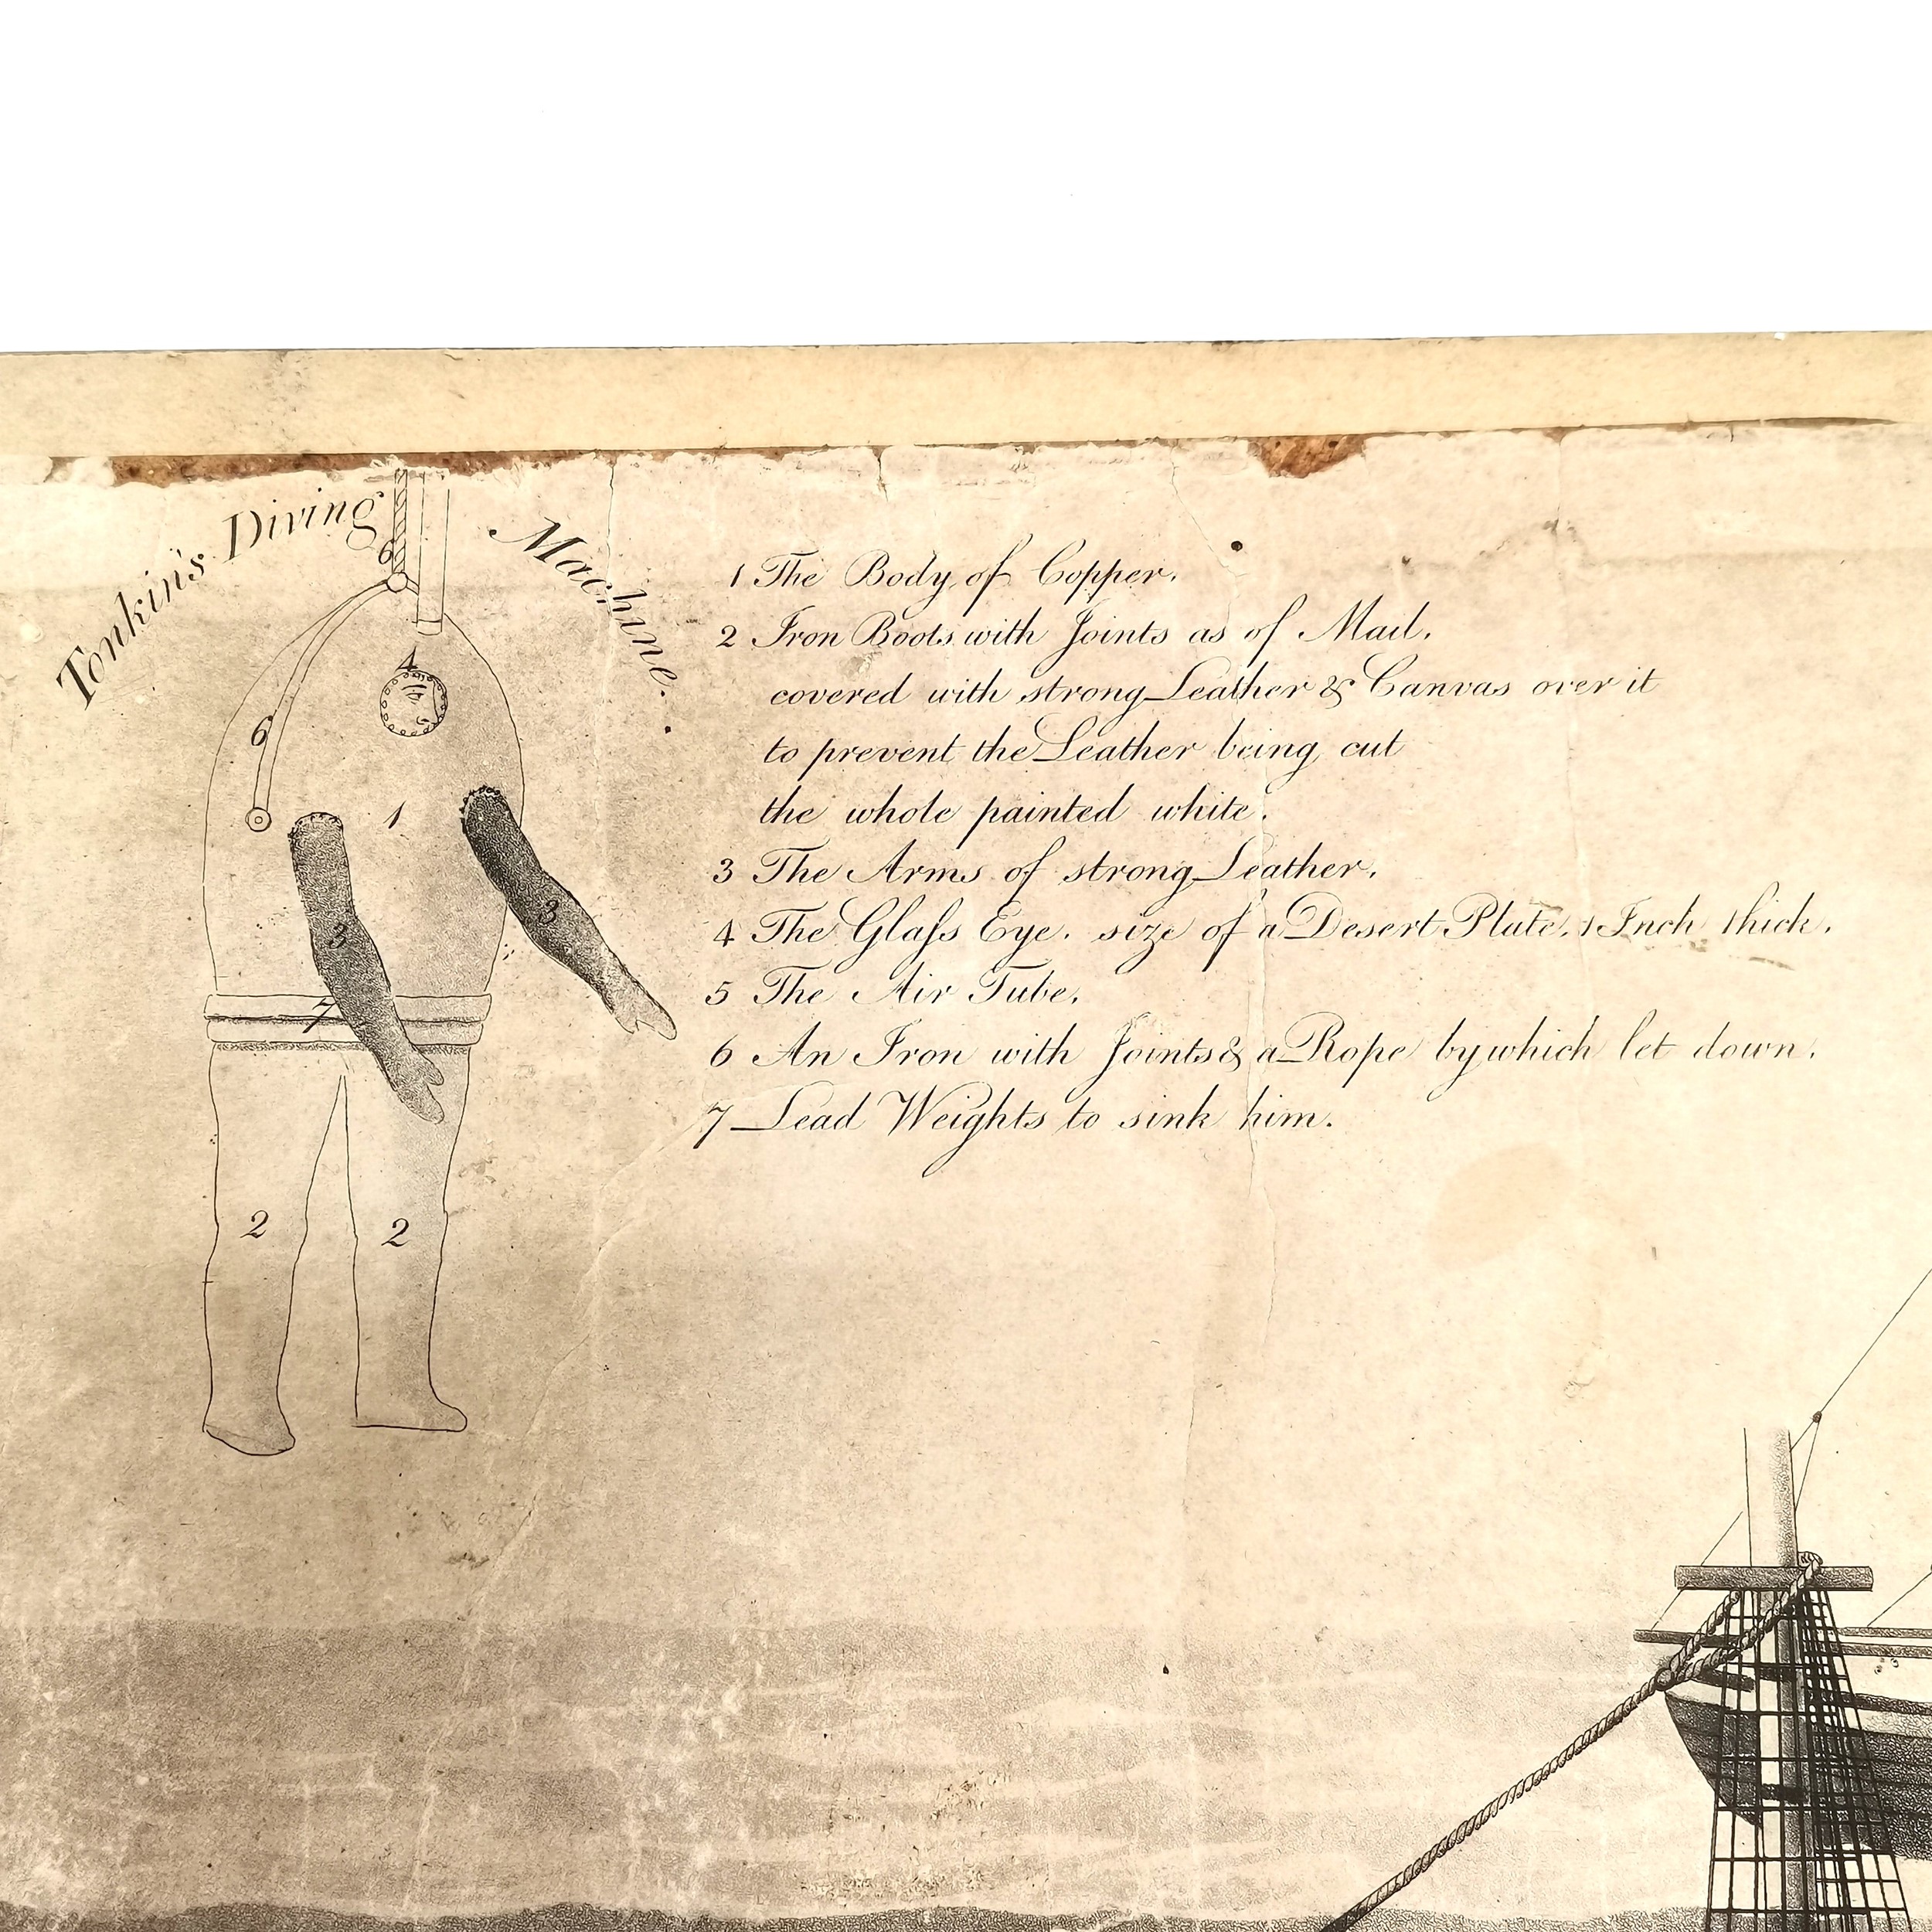 Tonkin's Diving Machine.
6
4
6
1
3
3
7
2
2
1 The Body of Copper.
2 Iron Boots with Joints as of Mail.
covered with strong Leather & Canvas over it
to prevent the Leather being cut
the whole painted white.
3 The Arms of strong Leather.
4 The Glaſs Eye. size of a Desert Plate. 1 Inch thick.
5 The Air Tube.
6 An Iron with Joints & a Rope by which let down.
7 Lead Weights to sink him.